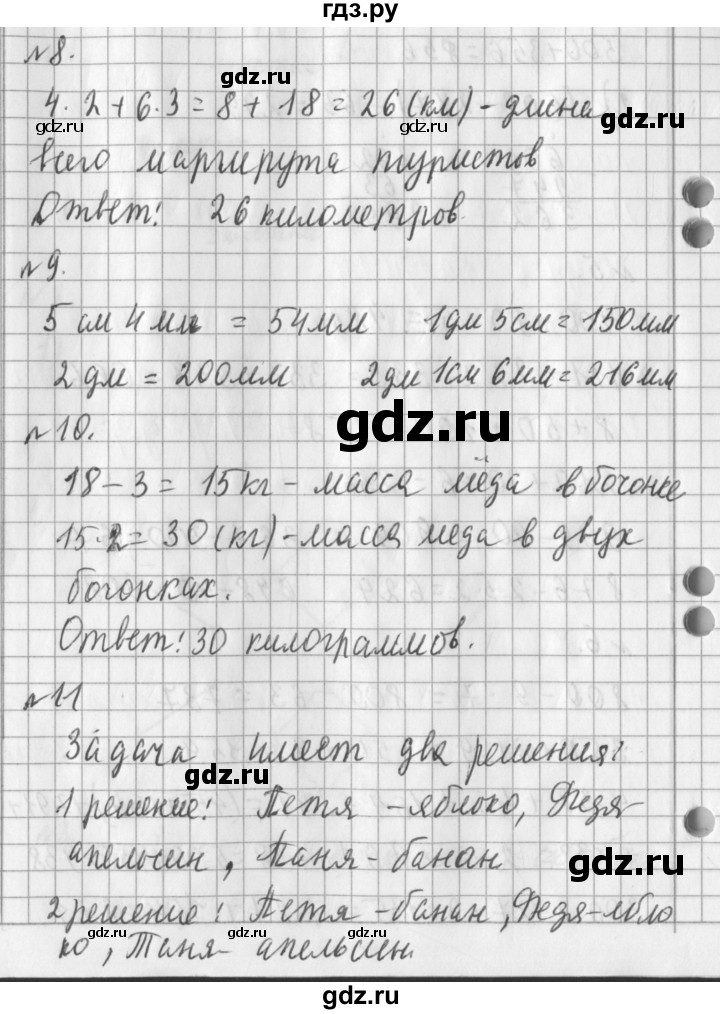 гдз.ру
№8.
gdz.ru
gdz.ru
4·2+6·3=8+18=26(км)-длина
gdz.ru
gdz.ru
gdz.ru
всего маршрута туристов
Ответ: 26 километров.
№9.
5 см 4 мм = 54мм 1дм 5см = 150мм
2 дм = 200мм 2дм 1см 6мм = 216мм
gdz.ru
№10.
18-3=15кг-масса мёда в бочонке
15·2=30(кг)-масса меда в двух
gdz.ru
бочонках.
Ответ: 30 килограммов.
№11
Задача имеет два решения:
gdz.ru
1 решение: Петя -яблоко, Федя
апельсин, Таня-банан
gdz.ru
2 решение: Петя -банан, Федя-ябло
gdz.ru
gdz.ru
ко, Таня- апельсин.
gdz.ru